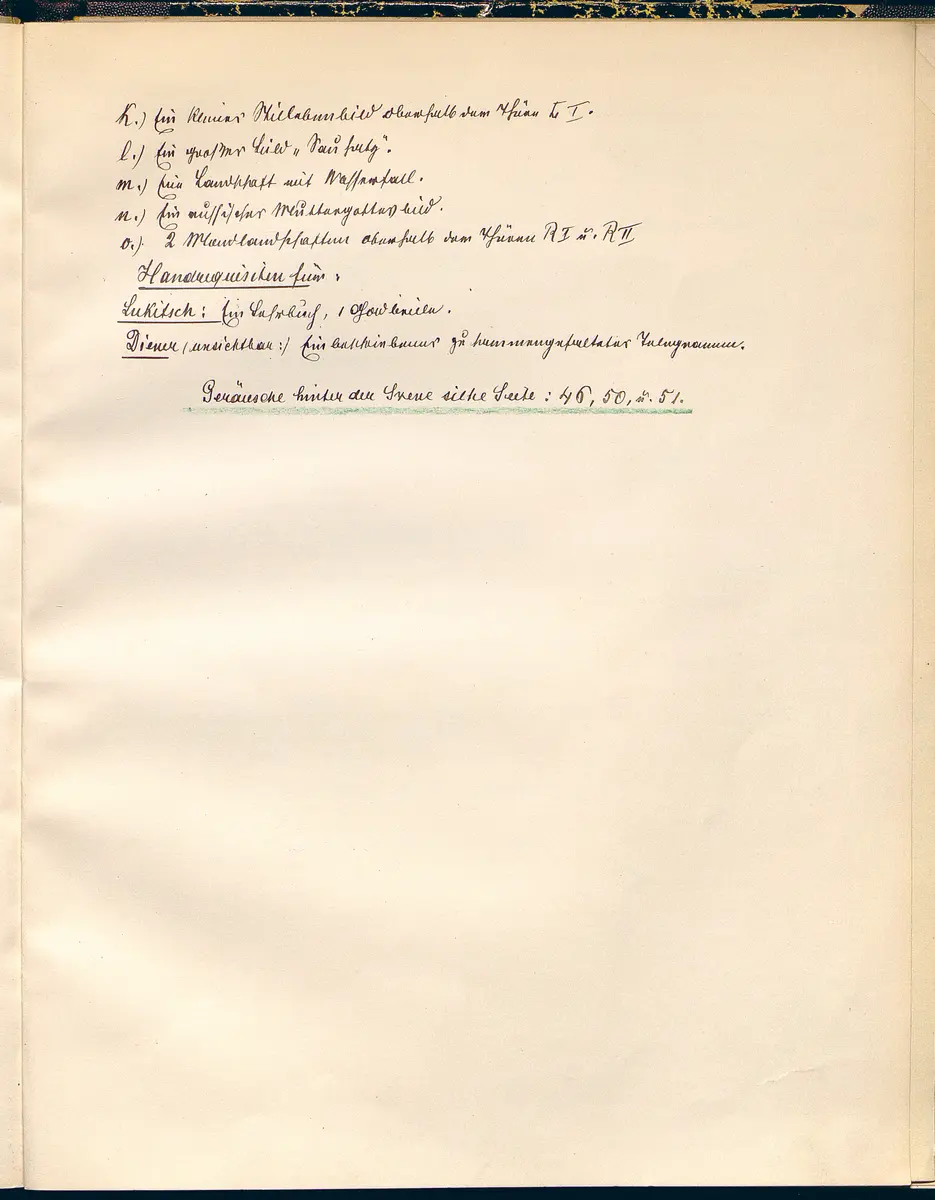 k.) Ein kleines Stillebenbild oberhalb dem Thüre L I.
l.) Ein großes Bild „Sau hatz".
m.) Eine Landschaft mit Wasserfall.
n.) Ein russisches Muttergottesbild.
o.) 2 Mondlandschaften oberhalb den Thüren R I u. R II
Handrequisiten für:
Lukitsch: Ein Lehrbuch, 1
Diener (unsichtbar:) Ein beschriebenes zusammengefaltetes Telegramm.
Geräusche hinter der Scene siehe Seite: 46, 50, u. 51.